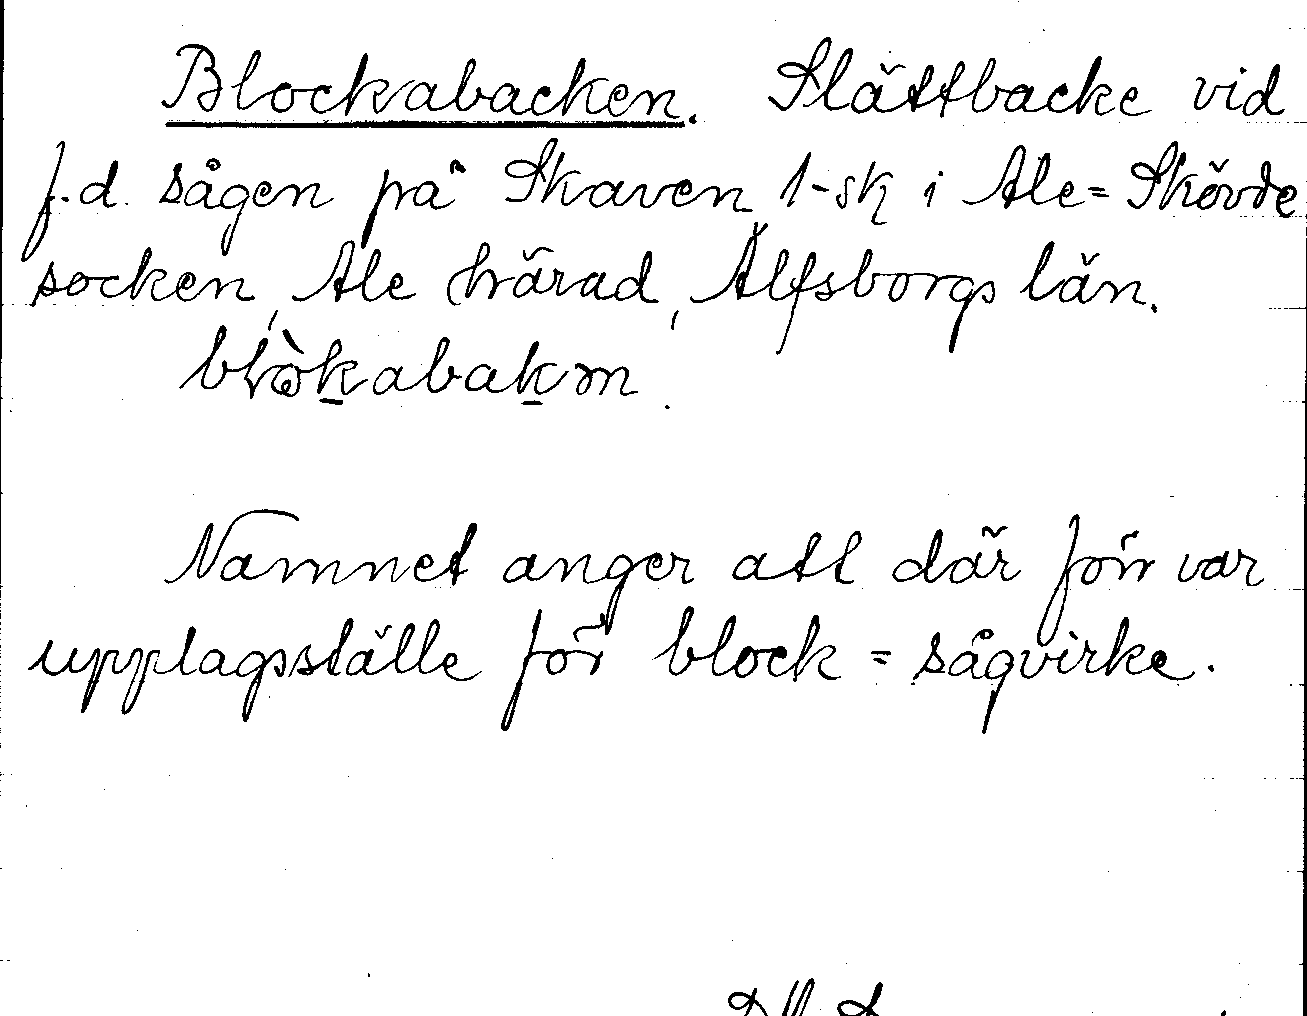 Blockabacken. Slättbacke vid
f.d. sågen på Skaven 1-sk i Ale=Skövde
socken, Ale härad, Älfsborgs län.
blòkabakm.
Namnet anger att där förr var
upplagsställe för block = sågvirke.